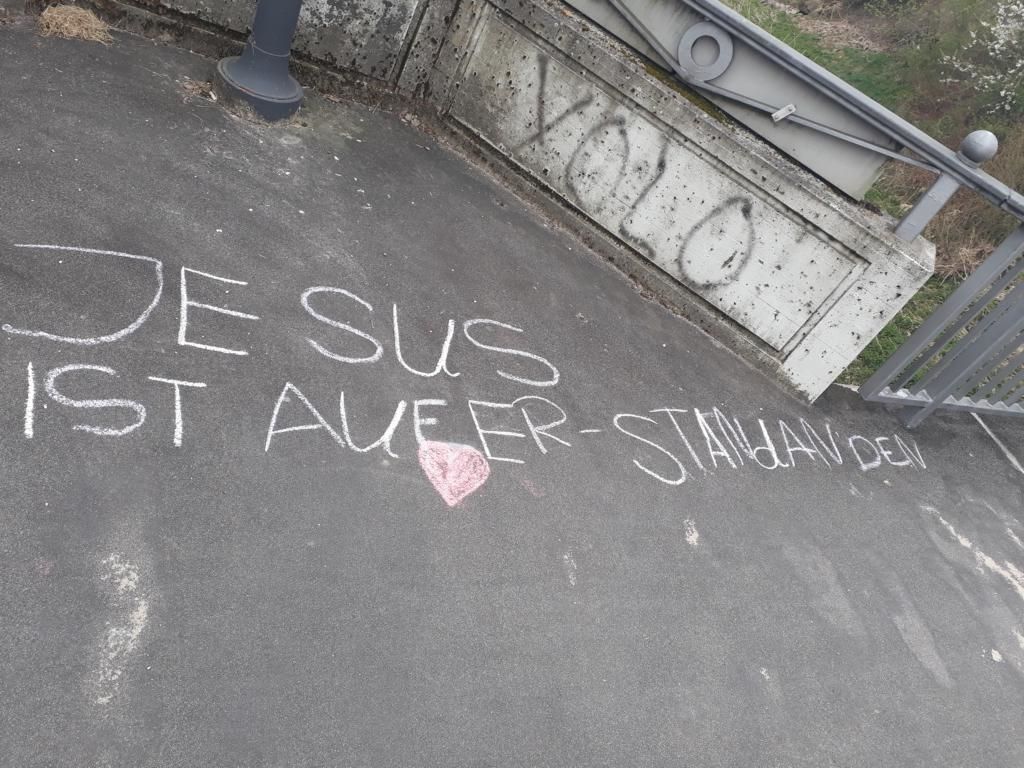 YOLO
JESUS
IST AUFER-STANdANDEN